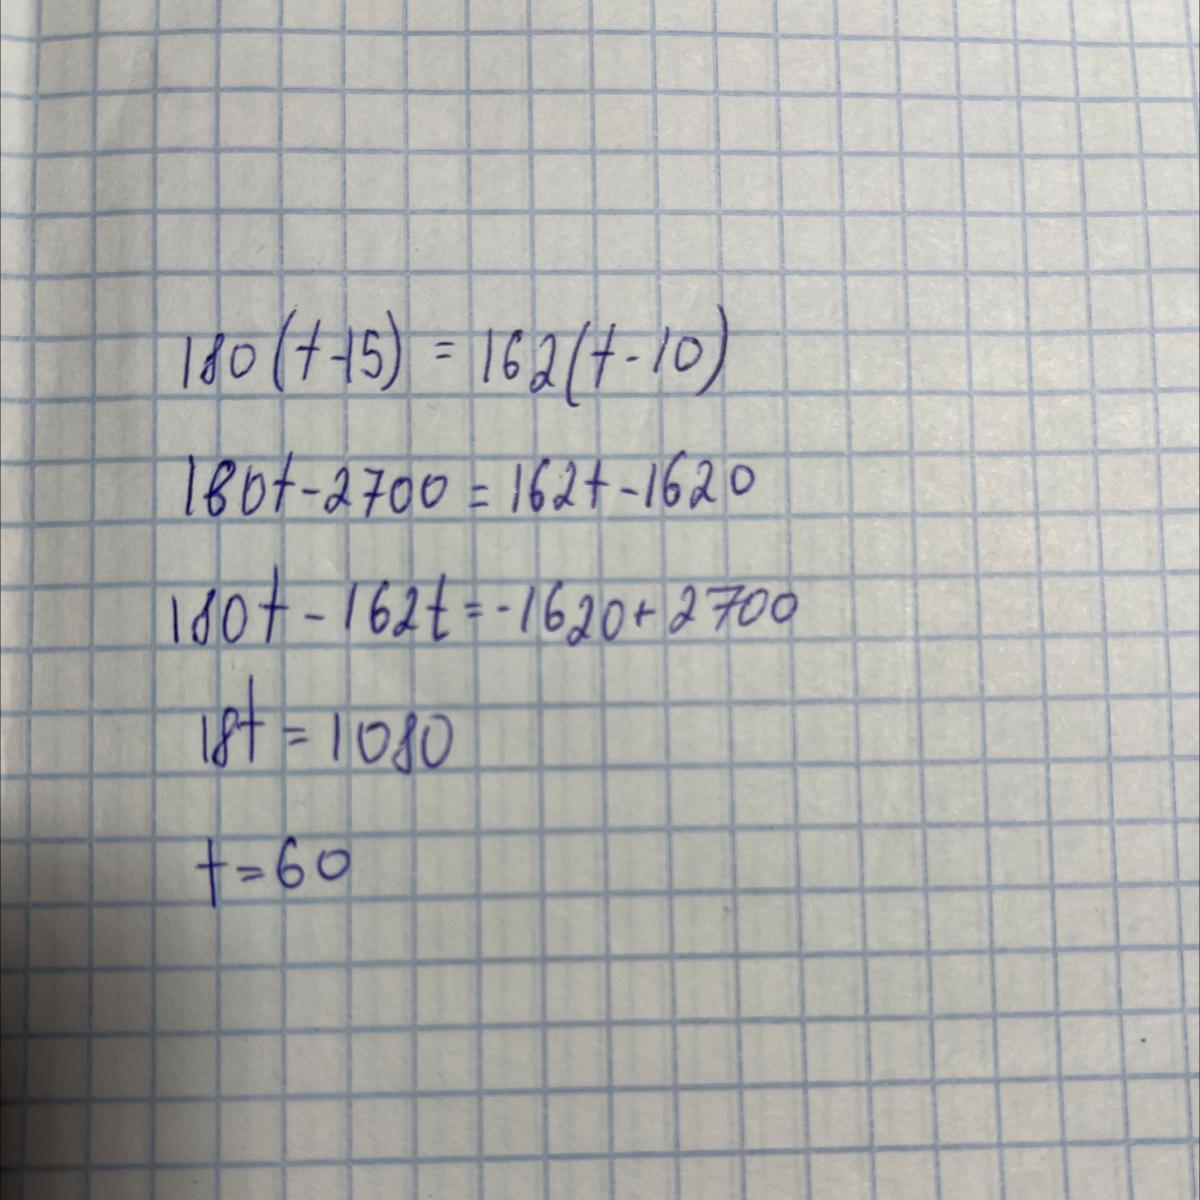 180(t-15) = 162(t-10)
180t-2700 = 162t-1620
180t-162t=-1620+2700
18t=1080
t=60